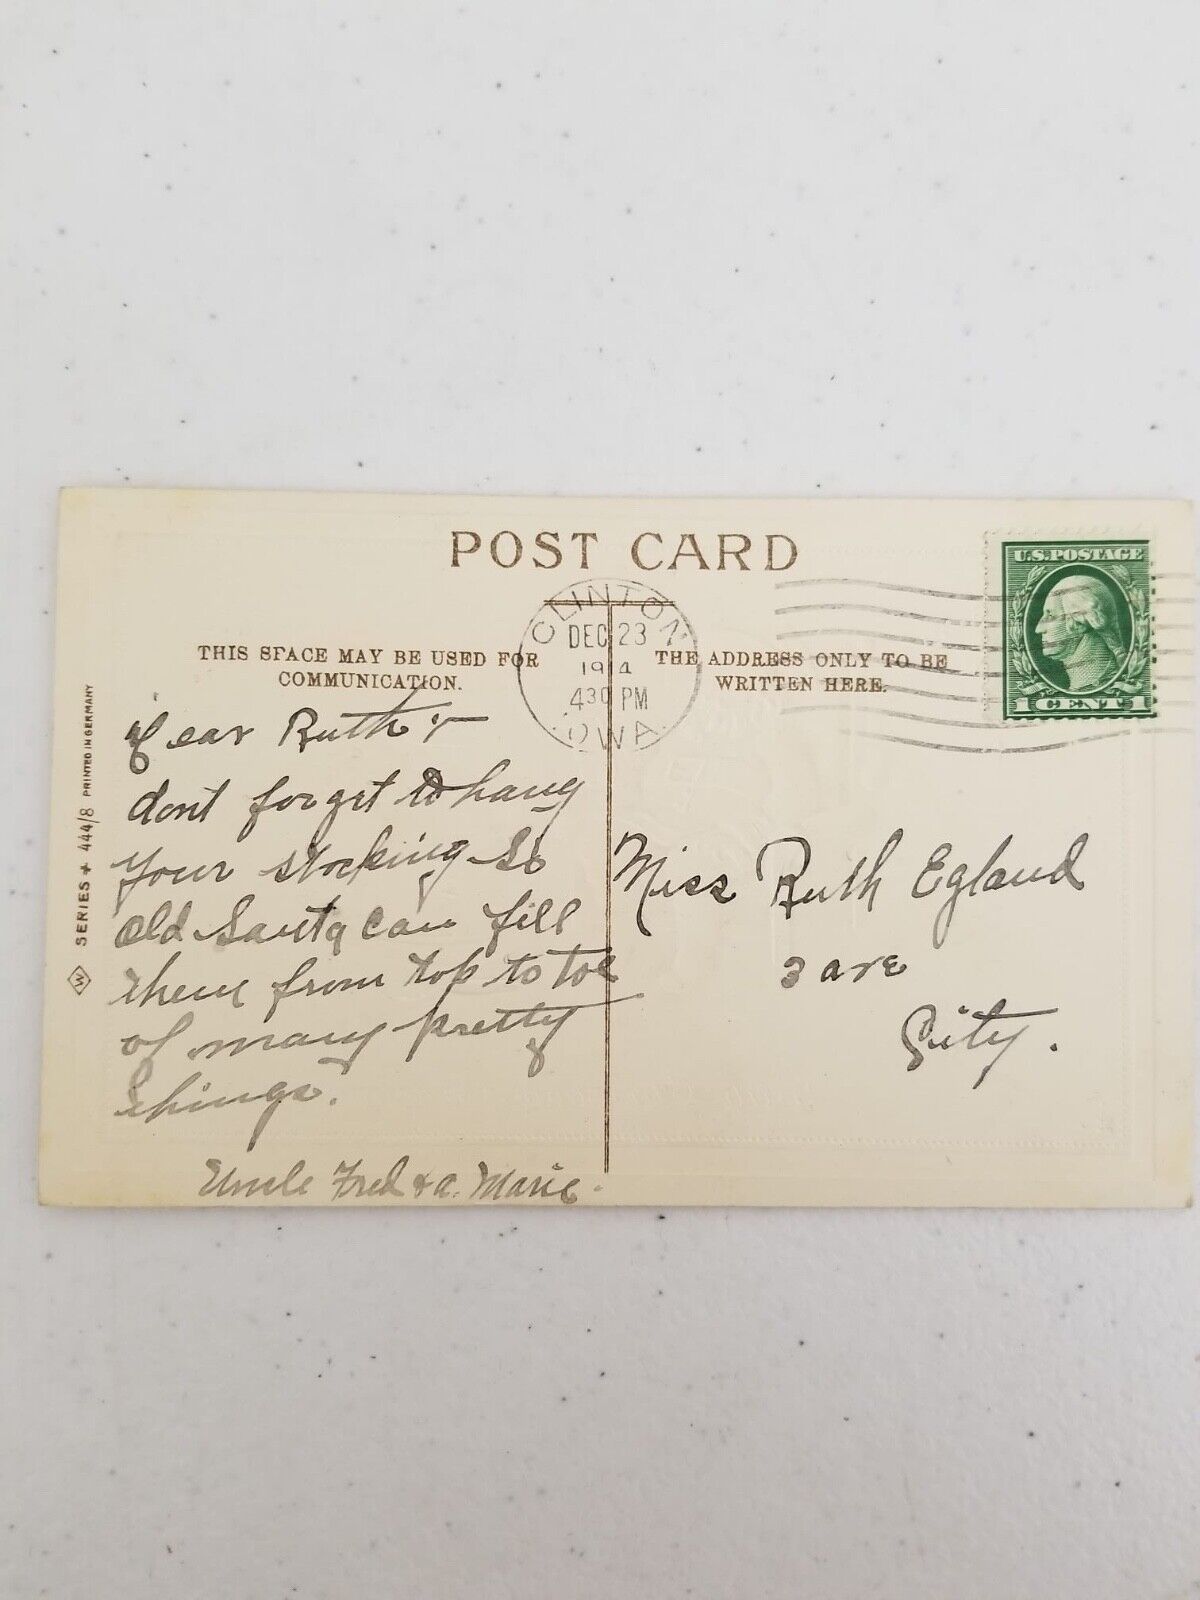 POST CARD
U.S. POSTAGE
1 CENT 1
CLINTON
DEC 23
1914
4 30 PM
IOWA
THIS SPACE MAY BE USED FOR
COMMUNICATION.
THE ADDRESS ONLY TO BE
WRITTEN HERE.
SERIES 444/8 PRINTED IN GERMANY
W
Dear Ruth :-
dont forget to hang
your stocking so
old Santa can fill
them from top to toe
of many pretty
things.
Uncle Fred & a. Marie.
Miss Ruth Egland
3 ave
City.